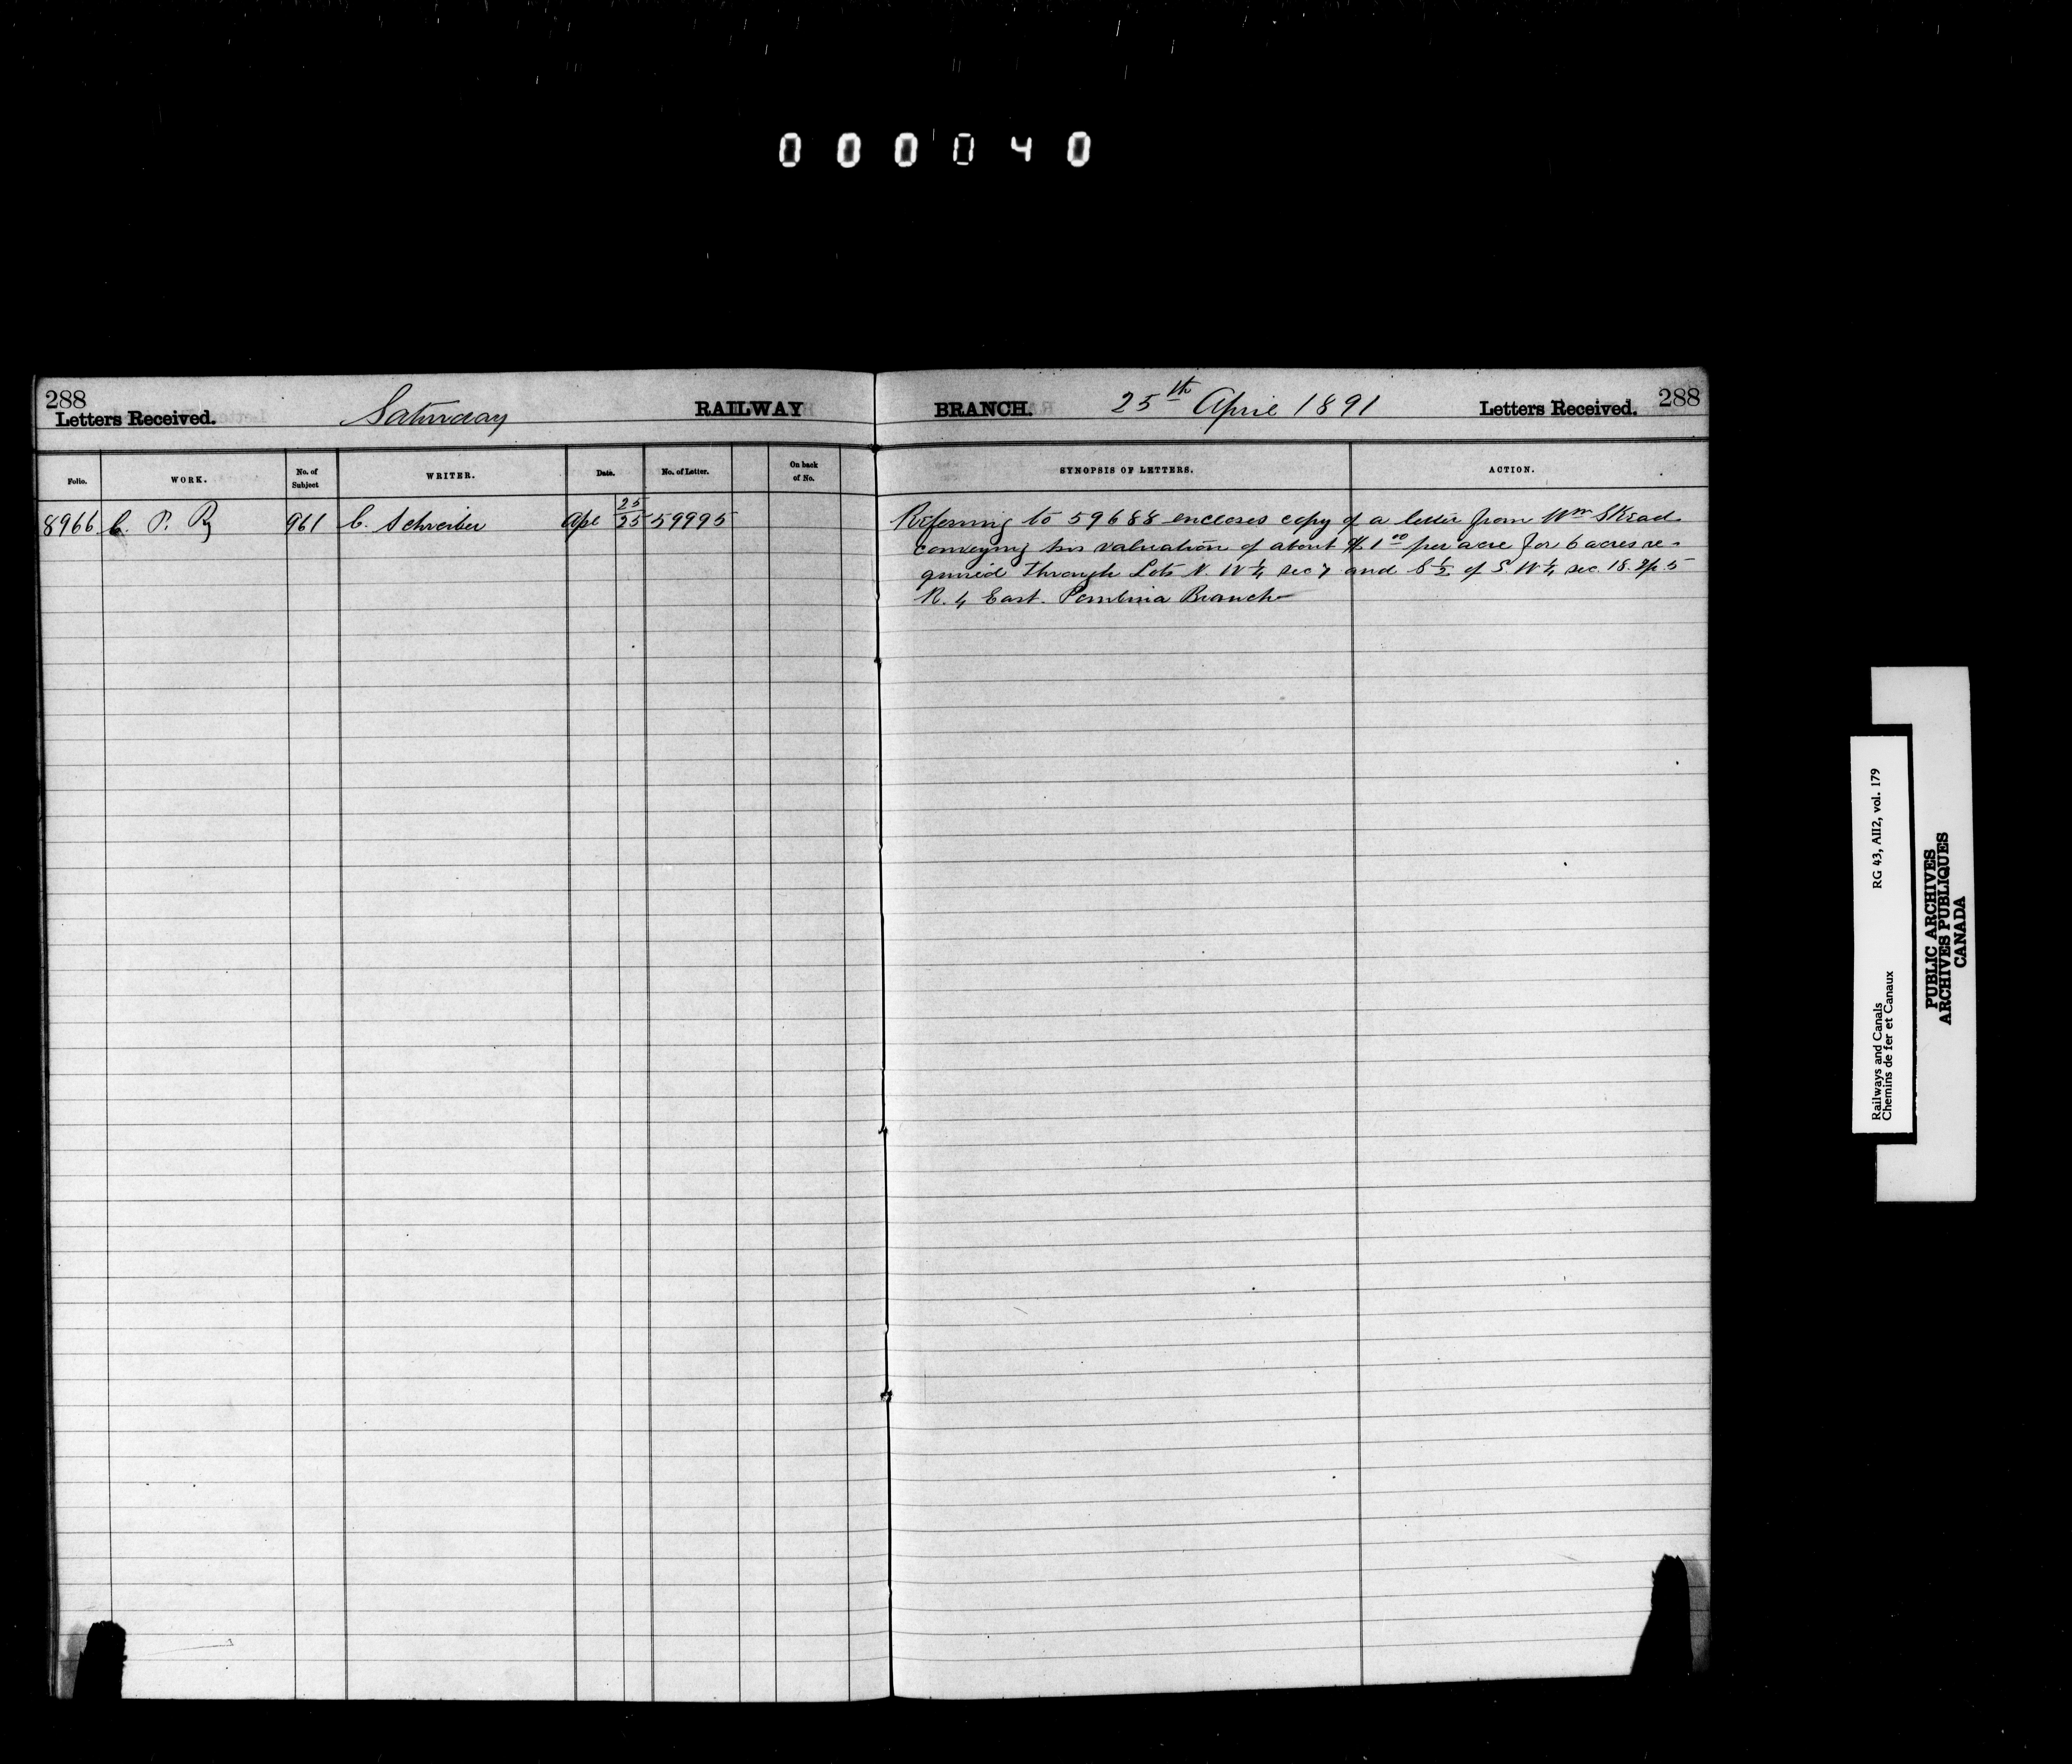 000040
288 288
Letters Received. Saturday RAILWAY BRANCH. 25th April 1891 Letters Received.
Folio. WORK. No. of Subject WRITER. Date. No. of Letter. On back of No. SYNOPSIS OF LETTERS. ACTION.
8966 C. P. Ry 961 C. Schreiber Apl 25/25 59995 Referring to 59688 encloses copy of a letter from Wm Skead
conveying his valuation of about $1.00 per acre for 6 acres re-
quired through Lots N. W 1/4 sec 7 and E 1/2 of S. W 1/4 sec. 18. Tp. 5
R. 4 East. Pembina Branch
Railways and Canals RG 43, AII2, vol. 179
Chemins de fer et Canaux
PUBLIC ARCHIVES
ARCHIVES PUBLIQUES
CANADA